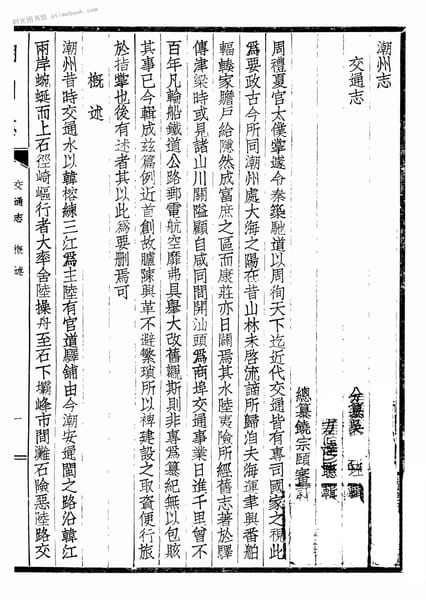 潮州志
交通志
分纂吳
輯
總纂饒宗頤審訂
周禮夏官太僕掌遂令秦築馳道以周徇天下迄近代交通皆有專司國家之視此
爲要政古今所同潮州處大海之陽在昔山林未啓流謫所歸洎夫海運聿興番舶
輻輳家贍戶給隱然成富庶之區而康莊亦日闢焉其水陸夷險所經舊志著於驛
傳津梁時或見諸山川關隘顧自咸同間開汕頭爲商埠交通事業日進千里曾不
百年凡輪船鐵道公路郵電航空靡弗具舉大改舊觀斯則非專爲纂紀無以包賅
其事已今輯成茲篇例近首創故臚陳興革不避繁瑣所以裨建設之取資便行旅
於指掌也後有述者其以此爲要刪焉可
概述
潮州昔時交通水以韓榕練三江爲主陸有官道驛鋪由今潮安通閩之路沿韓江
兩岸蜿蜒而上石徑崎嶇行者大率舍陸操舟至石下壩峰市間灘石險惡陸路交
交通志 概述
一